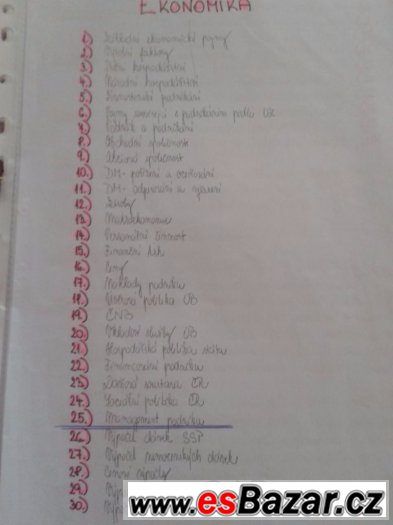 EKONOMIKA
1.) Základní ekonomické pojmy
2.) Výrobní faktory
3.) hospodářství
4.) Národní hospodářství
5.) podnikání
6.) Formy podnikání podle
7.) a podnikání
8.) Obchodní společnosti
9.) Akciová společnost
10.) DM - pořízení a oceňování
11.) DM - odpisování a vyřazení
12.) Zásoby
13.) Makroekonomie
14.) Personální činnost
15.) Finanční trh
16.) Ceny
17.) Náklady podniku
18.) politika ČB
19.) ČNB
20.) služby OB
21.) Hospodářská politika státu
22.) Financování podniku
23.) Daňová soustava ČR
24.) Sociální politika ČR
25.) Management podniku
26.) Výpočet dávek SSP
27.) Výpočet nemocenských dávek
28.) Cenové výpočty
29.)
30.)
www.esBazar.cz